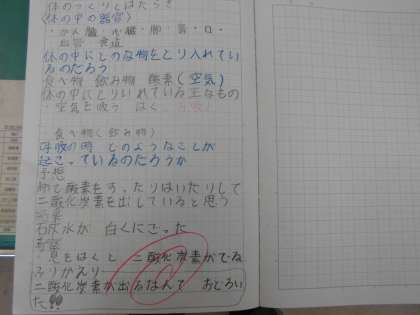 体のつくりとはたらき
〈体の中の器官〉
・かん臓・心臓・肺・胃・口・
血管・食道
体の中にどのような物をとり入れてい
るのだろう
食べ物 飲み物 酸素(空気)
体の中にとりいれている主なもの
・空気を吸う はく
・食べ物(飲み物)
呼吸の時 どのようなことが
起こっているのだろうか
予想
肺で酸素をすったりはいたりして
二酸化炭素を出していると思う
結果
石灰水が 白くにごった
考察
・息をはくと 二酸化炭素がでる
ふりかえり
二酸化炭素が出るなんて おどろい
た!!